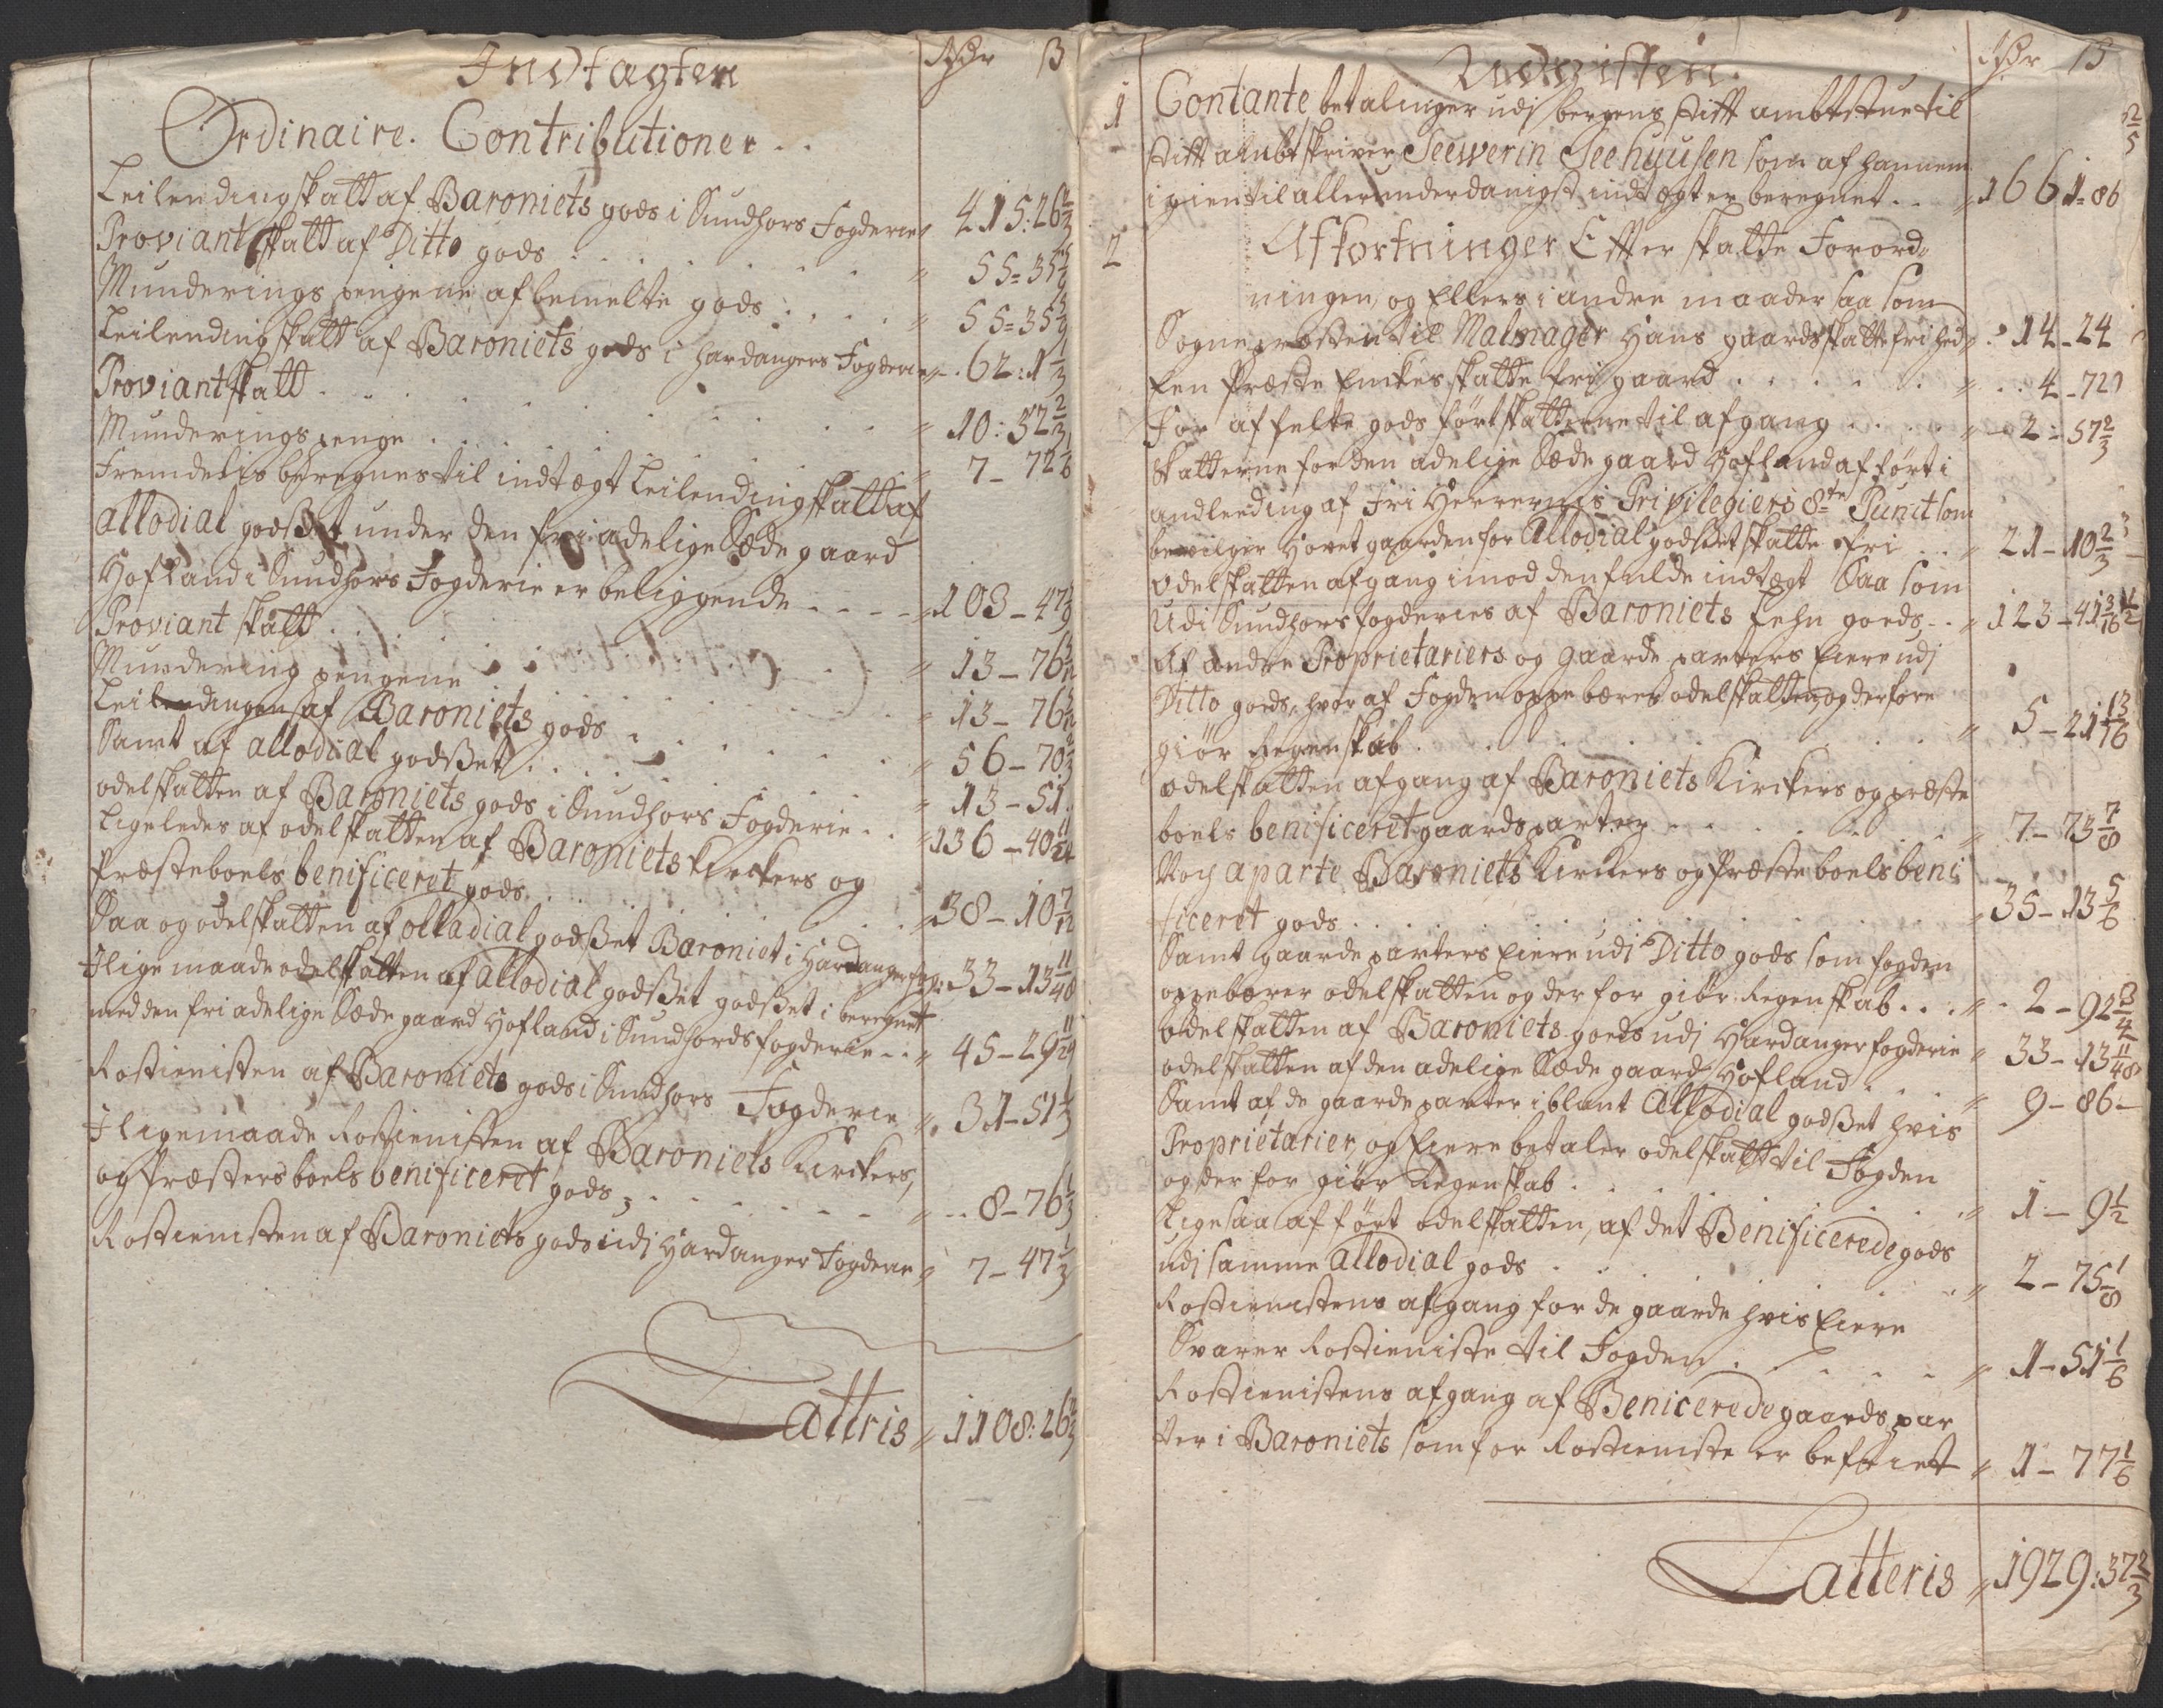 Indtagten
Rdr ß
Ordinaire. Contributioner..
Leilendingskatt af Baroniets gods i Sundhors Fogderie 415:26 2/3
Proviant skatt af Ditto gods 55=35 5/9
Munderings pengene af bemelte gods 55=35 5/9
Leilendingskatt af Baroniets gods i hardangers Fogderie 62:1 1/3
Proviantskatt 10:52 2/3
Munderings penge 7-72 1/6
Fremdelis beregnes til indtægt Leilendingskatt af
allodial godset under den fri adelige Sæde gaard
Hofland i Sundhors Fogderie er beliggende 103-47
Proviant skatt 13-76
Mundering pengene 13-76
Leilendingen af Baroniets gods 56-70
Samt af allodial godset 13-51
odelskatten af Baroniets gods i Sundhors Fogderie 136-40 11/24
Ligeledes af odelskatten af Baroniets Kirckers og
Præsteboels benificeret gods 38-10 7/12
Saa og odelskatten af olladial godset Baroniet i Hardanger 33-13 11/48
I lige maade odelskatten af allodial godset godset i beregnet
med den fri adelige Sæde gaard Hofland i Sundhords fogderie 45-29 11/24
Rostienisten af Baroniets gods i Sundhors Fogderie 31-51 1/3
I ligemaade Rostienisten af Baroniets Kirckers,
og Præsters boels benificeret gods 8-76 1/3
Rostienisten af Baroniets gods udj Hardanger Fogderie 7-47 1/3
Lattris 1108:26 2/3
Udgiften.
Rdr ß
1 Contante betalinger udj bergens stift ambtstue til
stift ambtskriver Seewerin Seehuusen som af hannem
igien til allerunderdanigst indtægter beregnet 1661=86 2/5
2 Afkortninger Efter skatte Forord-
ningen, og Ellers i andre maader saa som
Sognepræsten til Malmager Hans gaards skatte frihed 14-24
Een Præste Enckes skatte fri gaard 4-72
For affelte gods ført skatterne til afgang 2-57 2/3
Skatterne for den adelige Sæde gaard Hofland af ført i
andleeding af Fri Herrernis Privilegiers 8te Punct som
bevilger Hovet gaarden for Allodial godset skatte fri 21-10 2/3
Odelskatten afgang imod den fulde indtægt Saa som
Udi Sundhors fogderies af Baroniets Lehn goeds 123-41
Af andre Proprietariers og gaarde parters Eiere udj
Ditto goeds, hvor af Fogden oppebærer odelskatten og derfore
giør Regenskab 5-21 13/16
odelskatten afgang af Baroniets Kirckers og præste
boels benificeret gaards parter 7-73 7/8
Noch aparte Baroniets Kirckers og Præsteboels beni
ficeret gods 35-13 5/6
Samt gaarde parters Eiere udj Ditto gods som fogden
oppebærer odelskatten og der for giør Regenskab 2-92 3/4
odelskatten af Baroniets goeds udj Hardanger fogderie 33-13 11/48
odelskatten af den adelige Sæde gaard Hofland 9-86-
Samt af de gaarde parter iblant Allodial godset hvis
Proprietarier, og Eiere betaler odelskatt til Fogden
og der for giør Regenskab 1-9 1/2
Lige saa af ført odelskatten, af det Benificerede gods
udj samme allodial gods 2-75 1/8
Rostienistens afgang for de gaarde hvis Eiere
Svarer Rostieniste til Fogden 1-51 1/6
Rostienistens afgang af Benicerede gaards par
ter i Baroniets som for Rostieniste er befriet 1-77 1/6
Latteris 1929:37 2/3